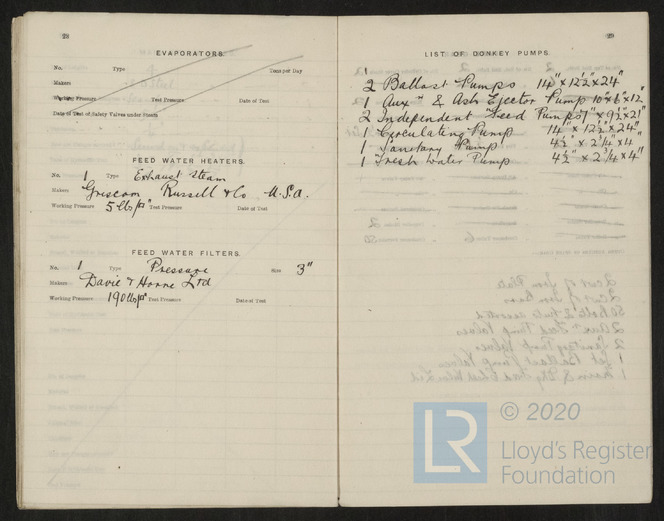 28
EVAPORATORS.
No. Type Tons per Day
Makers
Working Pressure Test Pressure Date of Test
Date of Test of Safety Valves under Steam
FEED WATER HEATERS.
No. 1 Type Exhaust Steam
Makers Griscom Russell & Co U.S.A.
Working Pressure 5 lbs/□" Test Pressure Date of Test
FEED WATER FILTERS.
No. 1 Type Pressure Size 3"
Makers Davie & Horne Ltd
Working Pressure 190 lbs/□" Test Pressure Date of Test
29
LIST OF DONKEY PUMPS.
2 Ballast Pumps 14" x 12½" x 24"
1 Auxy & Ash Ejector Pump 10" x 6" x 12"
2 Independent Feed Pumps x 9½" x 21"
1 Circulating Pump 14" x 12½" x 24"
1 Sanitary Pump 4½" x 2¾" x 4"
1 Fresh Water Pump 4½" x 2¾" x 4"
LR © 2020
Lloyd's Register
Foundation